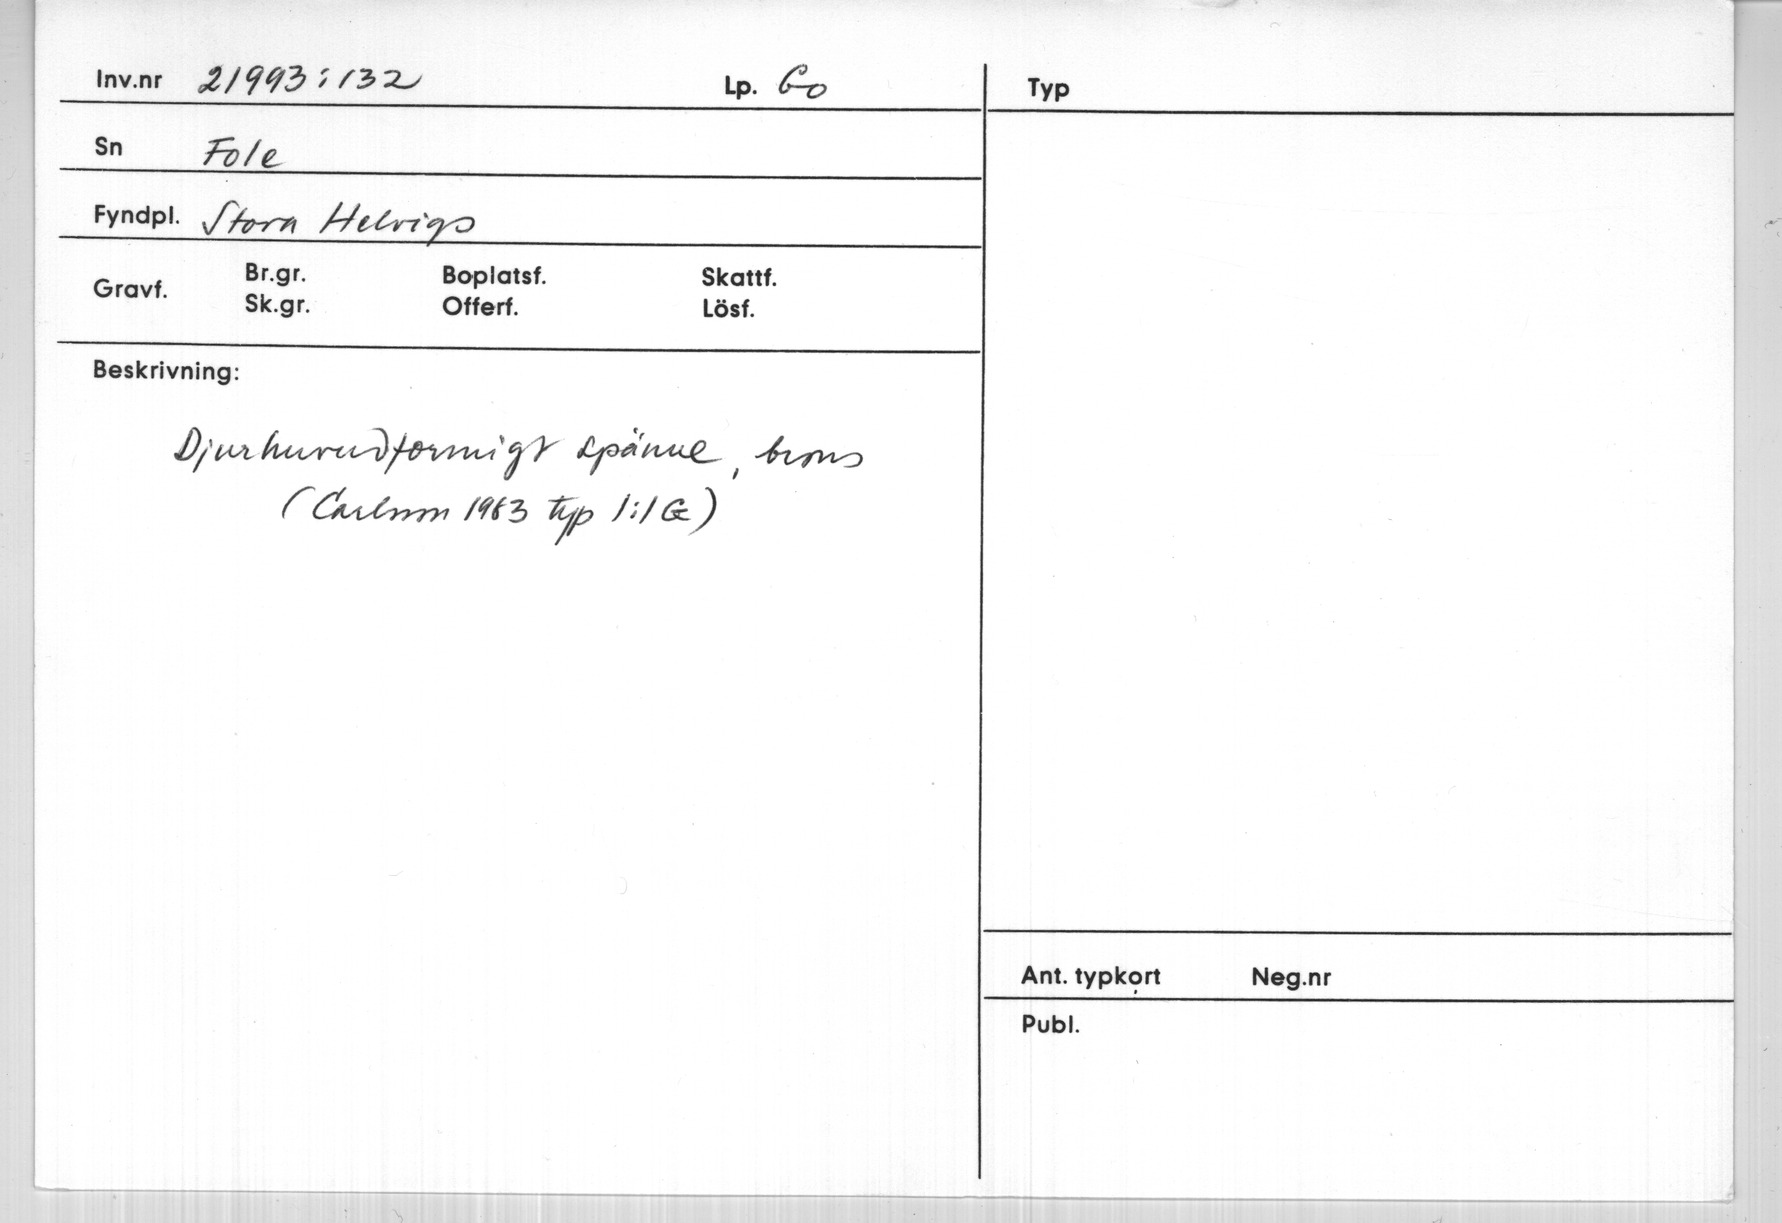 Inv.nr 21993:132 Lp. Go
Sn Fole
Fyndpl. Stora Helvigs
Gravf. Br.gr. Boplatsf. Skattf.
Sk.gr. Offerf. Lösf.
Beskrivning:
Djurhuvudformigt spänne, brons
(Carlsson 1983 typ 1:1 G)
Typ
Ant. typkort Neg.nr
Publ.